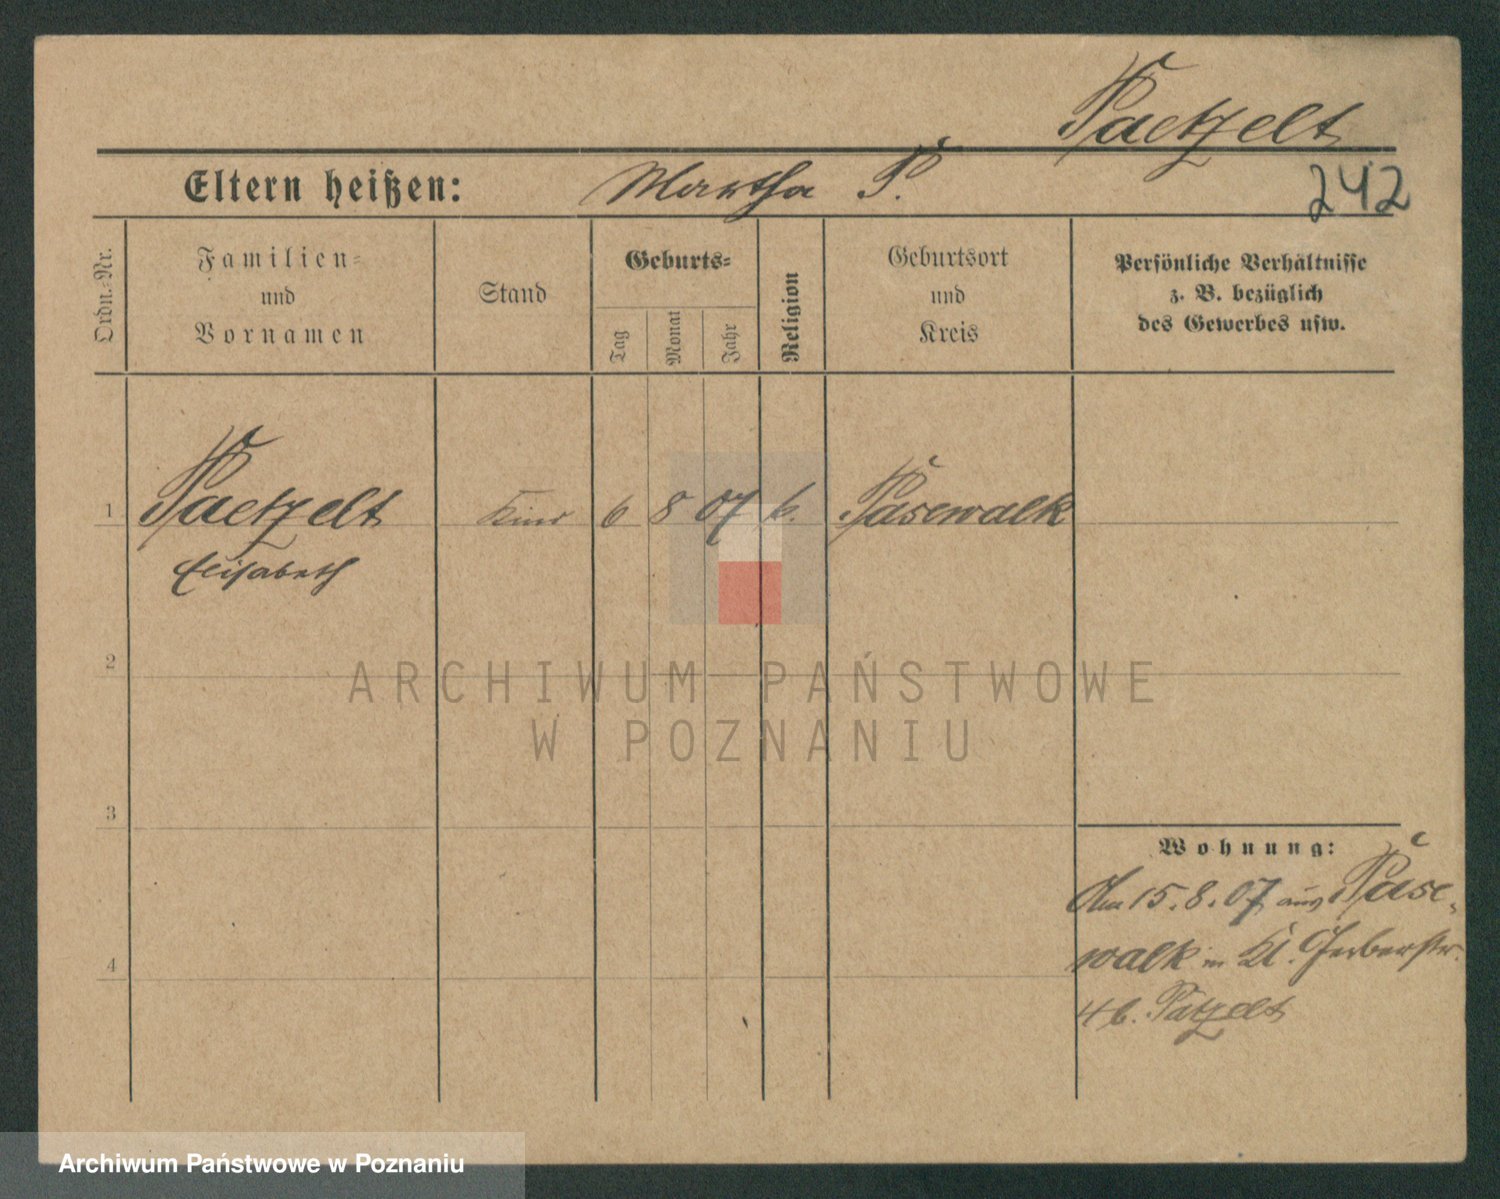 Paetzelt
Eltern heißen: Martha P.
242
Ordn.-Nr.
Familien-
und
Vornamen
Stand
Geburts-
Tag
Monat
Jahr
Religion
Geburtsort
und
Kreis
Persönliche Verhältnisse
z. B. bezüglich
des Gewerbes usw.
1 Paetzelt Kind 6 8 07 Pasewalk
Elisabeth
2
3
4
Wohnung:
Am 15.8.07 aus Pase-
walk in Kl. Gerberstr.
4 b. Patzelt
ARCHIWUM PAŃSTWOWE
W POZNANIU
Archiwum Państwowe w Poznaniu